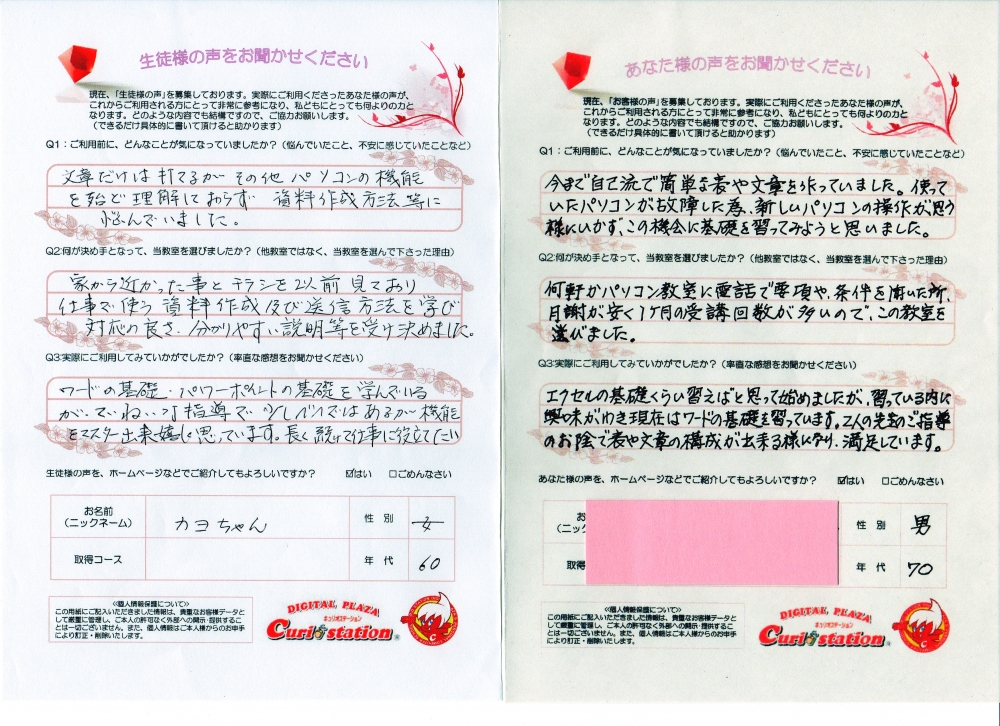 生徒様の声をお聞かせください
現在、「生徒様の声」を募集しております。実際にご利用くださったあなた様の声が、
これからご利用される方にとって非常に参考になり、私どもにとっても何よりの力と
なります。どのような内容でも結構ですので、ご協力お願いします。
(できるだけ具体的に書いて頂けると助かります)
Q1:ご利用前に、どんなことが気になっていましたか?(悩んでいたこと、不安に感じていたことなど)
文章だけは打てるが その他 パソコンの機能
を殆ど理解しておらず 資料作成方法等に
悩んでいました。
Q2:何が決め手となって、当教室を選びましたか?(他教室ではなく、当教室を選んで下さった理由)
家から近かった事と チラシを以前見ており
仕事で使う資料作成及び送信方法を学び
対応の良さ、分かりやすい説明等を受け決めました。
Q3:実際にご利用してみていかがでしたか?(率直な感想をお聞かせください)
ワードの基礎・パワーポイントの基礎を学んでいる
が、ていねいな指導で 少しづつではあるが機能
をマスター出来嬉しく思っています。長く続けて仕事に役立てたい
生徒様の声を、ホームページなどでご紹介してもよろしいですか? ☑はい □ごめんなさい
お名前
(ニックネーム)
カヨちゃん
性 別
女
取得コース
年 代
60
≪個人情報保護について≫
この用紙にご記入いただきました情報は、貴重なお客様データと
して厳重に管理し、ご本人の許可なく外部への開示・提供するこ
とは一切ございません。また、個人情報はご本人様からのお申手
により訂正・削除いたします。
DIGITAL PLAZA
キュリオステーション
Curio station
あなた様の声をお聞かせください
現在、「お客様の声」を募集しております。実際にご利用くださったあなた様の声が、
これからご利用される方にとって非常に参考になり、私どもにとっても何よりの力と
なります。どのような内容でも結構ですので、ご協力お願いします。
(できるだけ具体的に書いて頂けると助かります)
Q1:ご利用前に、どんなことが気になっていましたか?(悩んでいたこと、不安に感じていたことなど)
今まで自己流で簡単な表や文章を作っていました。使って
いたパソコンが故障した為、新しいパソコンの操作が思う
様にいかず、この機会に基礎を習ってみようと思いました。
Q2:何が決め手となって、当教室を選びましたか?(他教室ではなく、当教室を選んで下さった理由)
何軒かパソコン教室に電話で要項や、条件を聞いた所、
月謝が安く1ヶ月の受講回数が多いので、この教室を
選びました。
Q3:実際にご利用してみていかがでしたか?(率直な感想をお聞かせください)
エクセルの基礎くらい習えばと思って始めましたが、習っている内に
興味がわき現在はワードの基礎を習っています。2人の先生のご指導
のお陰で表や文章の構成が出来る様になり、満足しています。
あなた様の声を、ホームページなどでご紹介してもよろしいですか? ☑はい □ごめんなさい
お
(ニック
性 別
男
取得
年 代
70
≪個人情報保護について≫
この用紙にご記入いただきました情報は、貴重なお客様データと
して厳重に管理し、ご本人の許可なく外部への開示・提供するこ
とは一切ございません。また、個人情報はご本人様からのお申手
により訂正・削除いたします。
DIGITAL PLAZA
キュリオステーション
Curio station